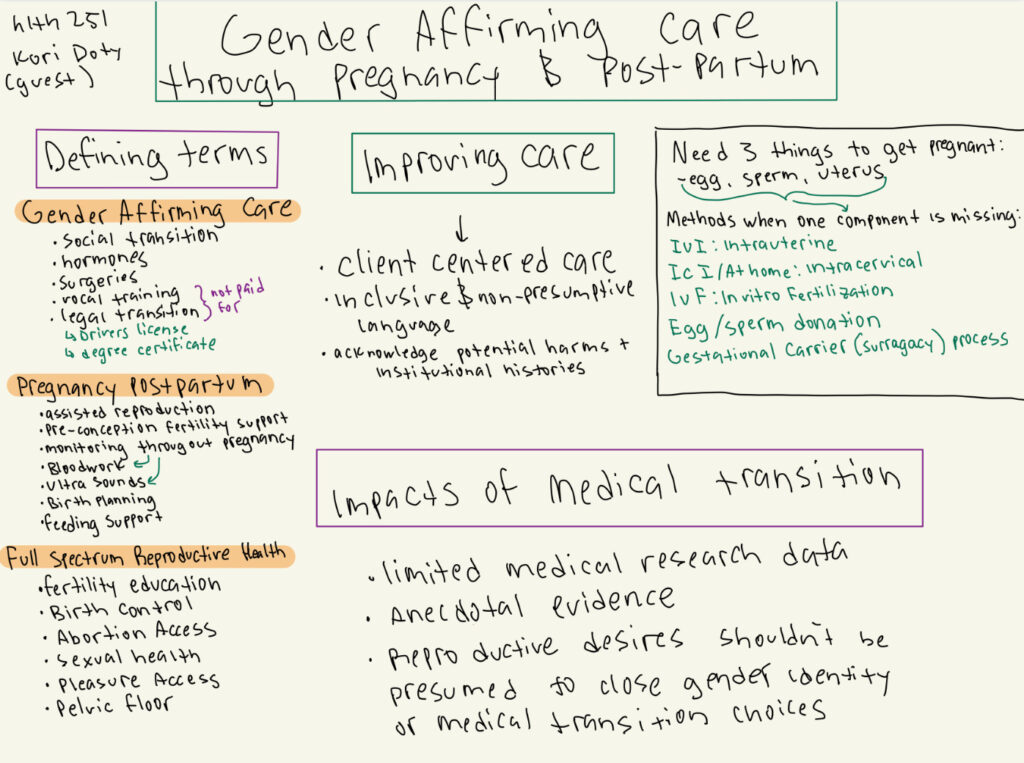 hlth 251
Kori Doty
(guest)
Gender Affirming Care
through pregnancy & Post-partum
Defining terms
Gender Affirming Care
• social transition
• hormones
• surgeries
• vocal training
• legal transition
} not paid
for
↳ Drivers license
↳ degree certificate
Pregnancy Postpartum
• assisted reproduction
• Pre-conception fertility support
• monitoring througout pregnancy
• Bloodwork
• Ultra sounds
• Birth Planning
• feeding support
Full Spectrum Reproductive Health
• fertility education
• Birth control
• Abortion Access
• sexual health
• Pleasure Access
• Pelvic floor
Improving care
↓
• client centered care
• inclusive & non-presumptive
language
• acknowledge potential harms +
institutional histories
Need 3 things to get pregnant:
- egg, sperm, uterus
Methods when one component is missing:
IUI: Intrauterine
ICI/At home: intracervical
IVF: Invitro Fertilization
Egg/sperm donation
Gestational Carrier (surragacy) process
Impacts of medical transition
• limited medical research data
• Anecdotal evidence
• Reproductive desires shouldn't be
presumed to close gender identity
or medical transition choices